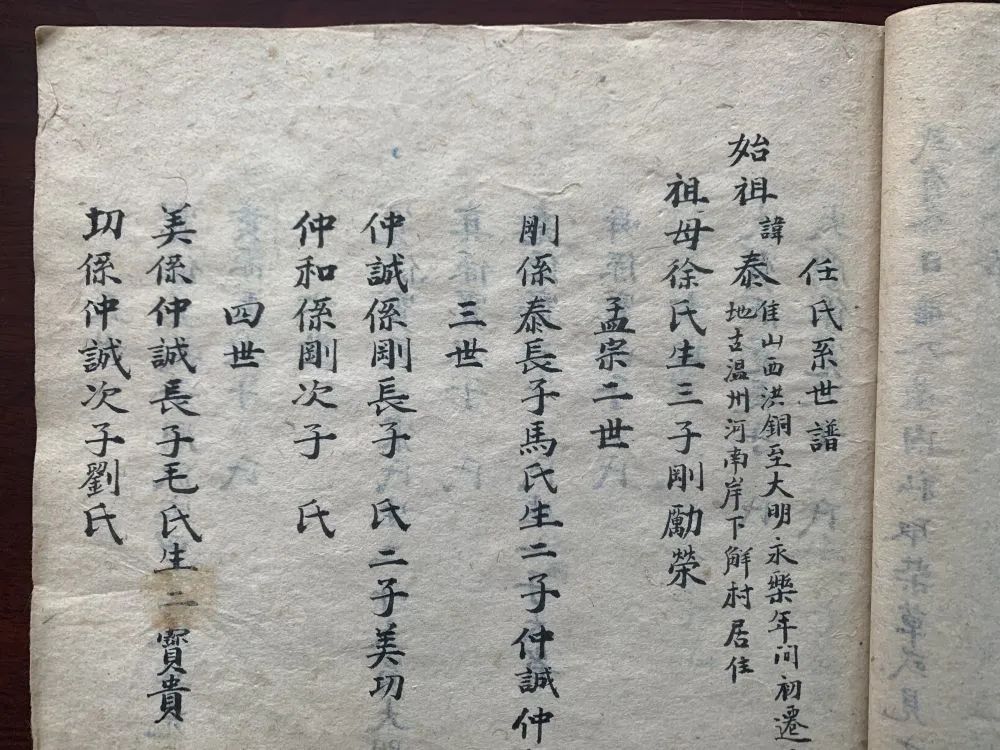 任氏系世譜
始祖諱泰隹山西洪銅至大明永樂年间初遷
地吉温州河南岸下解村居住
祖母徐氏生三子剛勵榮
孟宗二世
剛係泰長子馬氏生二子仲誠仲
三世
仲誠係剛長子 氏二子美功
仲和係剛次子 氏
四世
美係仲誠長子毛氏生二寶貴
功係仲誠次子劉氏